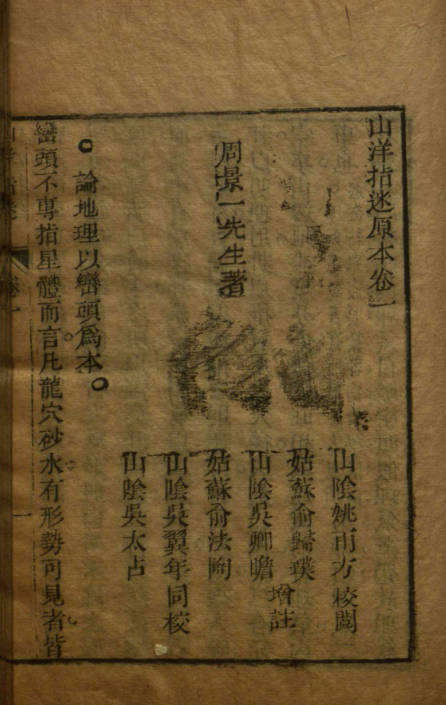 山洋指迷原本卷一
周景一先生著
山陰姚雨方校閱
姑蘇俞歸璞
山陰吳卿瞻
增註
姑蘇俞法
山陰吳翼年同校
山陰吳太占
論地理以巒頭為本
巒頭不專指星體而言凡龍穴砂水有形勢可見者皆
卷一
一